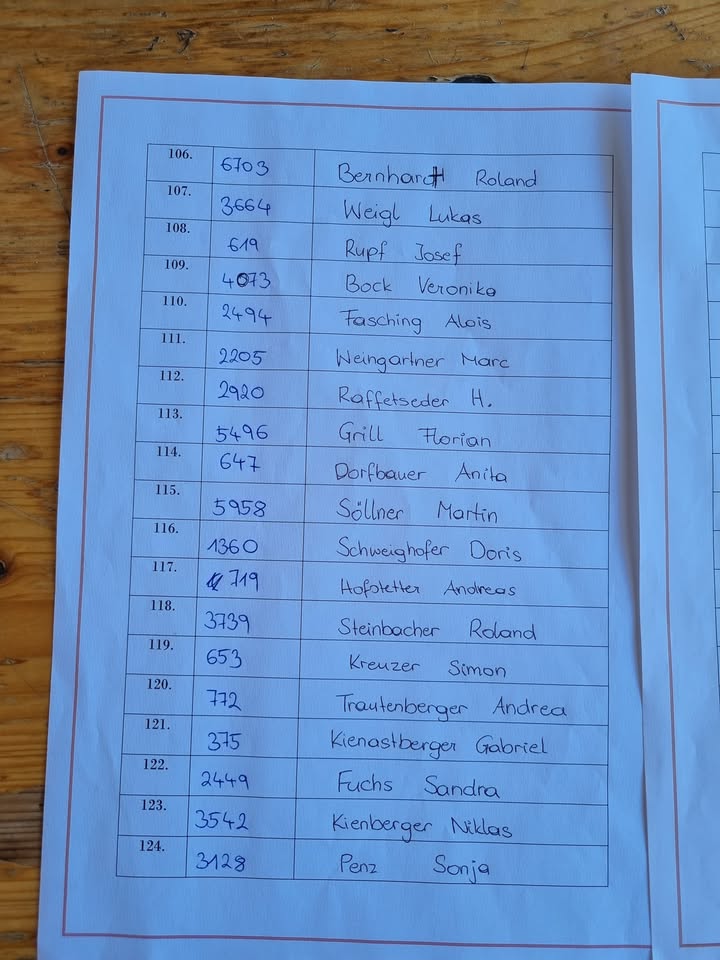 106. 6703 Bernhardt Roland
107. 3664 Weigl Lukas
108. 619 Rupf Josef
109. 4073 Bock Veronika
110. 2494 Fasching Alois
111. 2205 Weingartner Marc
112. 2920 Raffetseder H.
113. 5496 Grill Florian
114. 647 Dorfbauer Anita
115. 5958 Söllner Martin
116. 1360 Schweighofer Doris
117. 719 Hofstetter Andreas
118. 3739 Steinbacher Roland
119. 653 Kreuzer Simon
120. 772 Trautenberger Andrea
121. 375 Kienastberger Gabriel
122. 2449 Fuchs Sandra
123. 3542 Kienberger Niklas
124. 3128 Penz Sonja